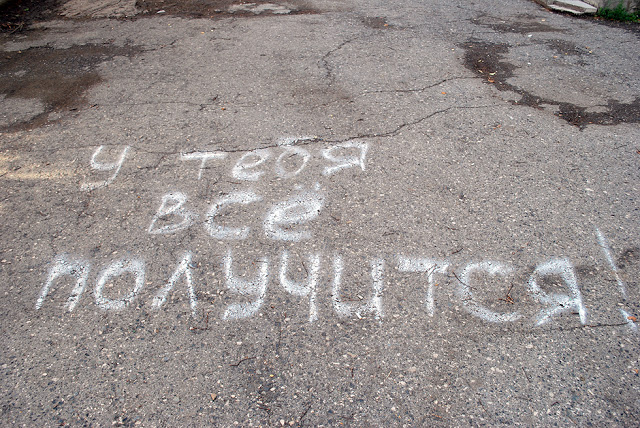 у тебя
всё
получится!